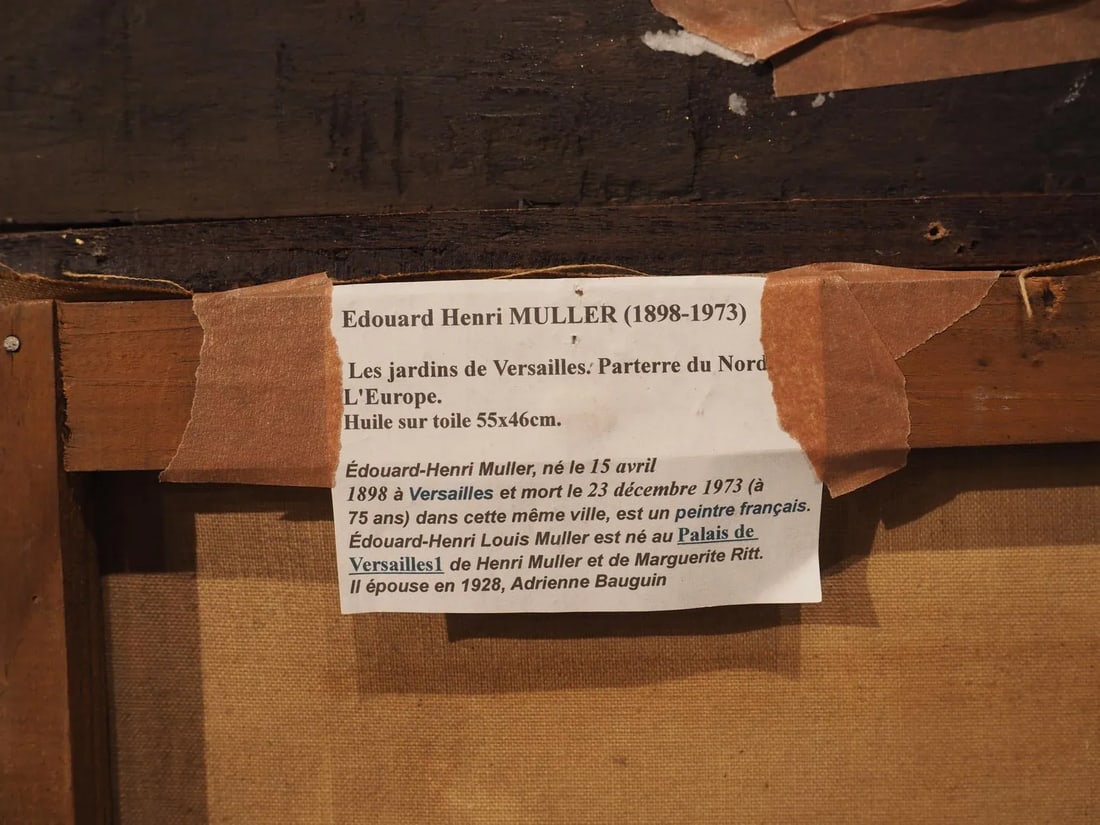 Edouard Henri MULLER (1898-1973)
Les jardins de Versailles. Parterre du Nord
L'Europe.
Huile sur toile 55x46cm.
Édouard-Henri Muller, né le 15 avril
1898 à Versailles et mort le 23 décembre 1973 (à
75 ans) dans cette même ville, est un peintre français.
Édouard-Henri Louis Muller est né au Palais de
Versailles1 de Henri Muller et de Marguerite Ritt.
Il épouse en 1928, Adrienne Bauguin